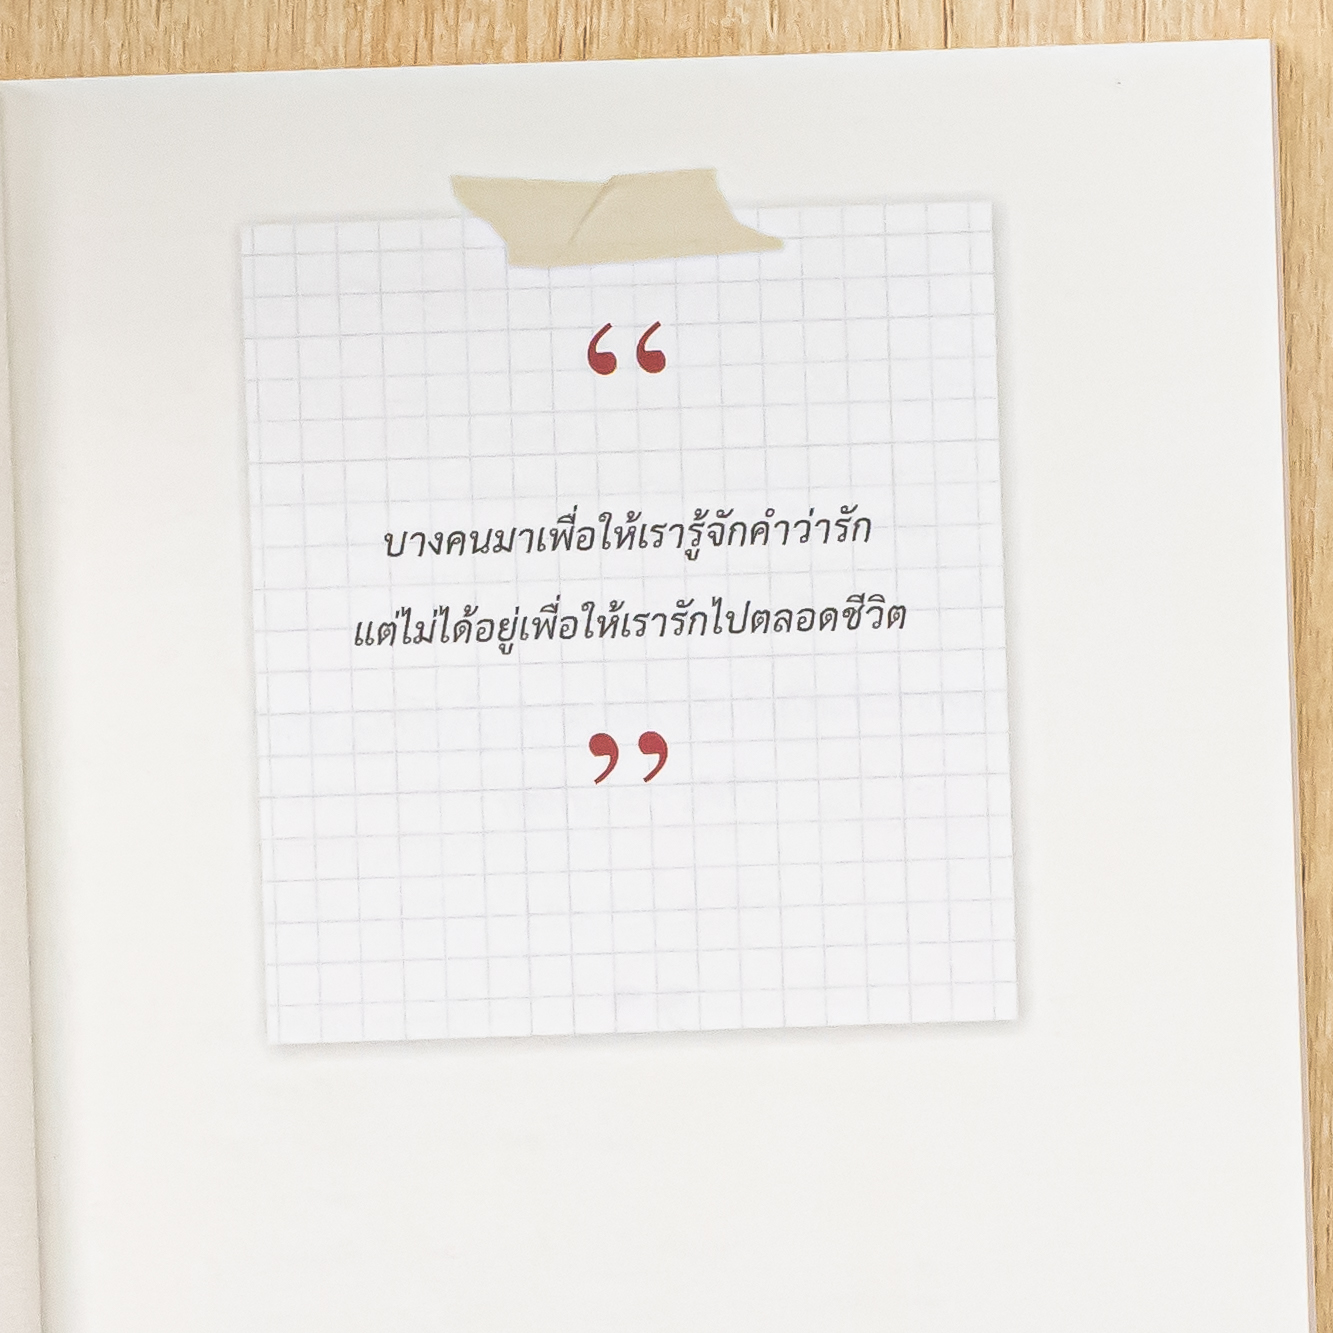 “
บางคนมาเพื่อให้เรารู้จักคำว่ารัก
แต่ไม่ได้อยู่เพื่อให้เรารักไปตลอดชีวิต
”